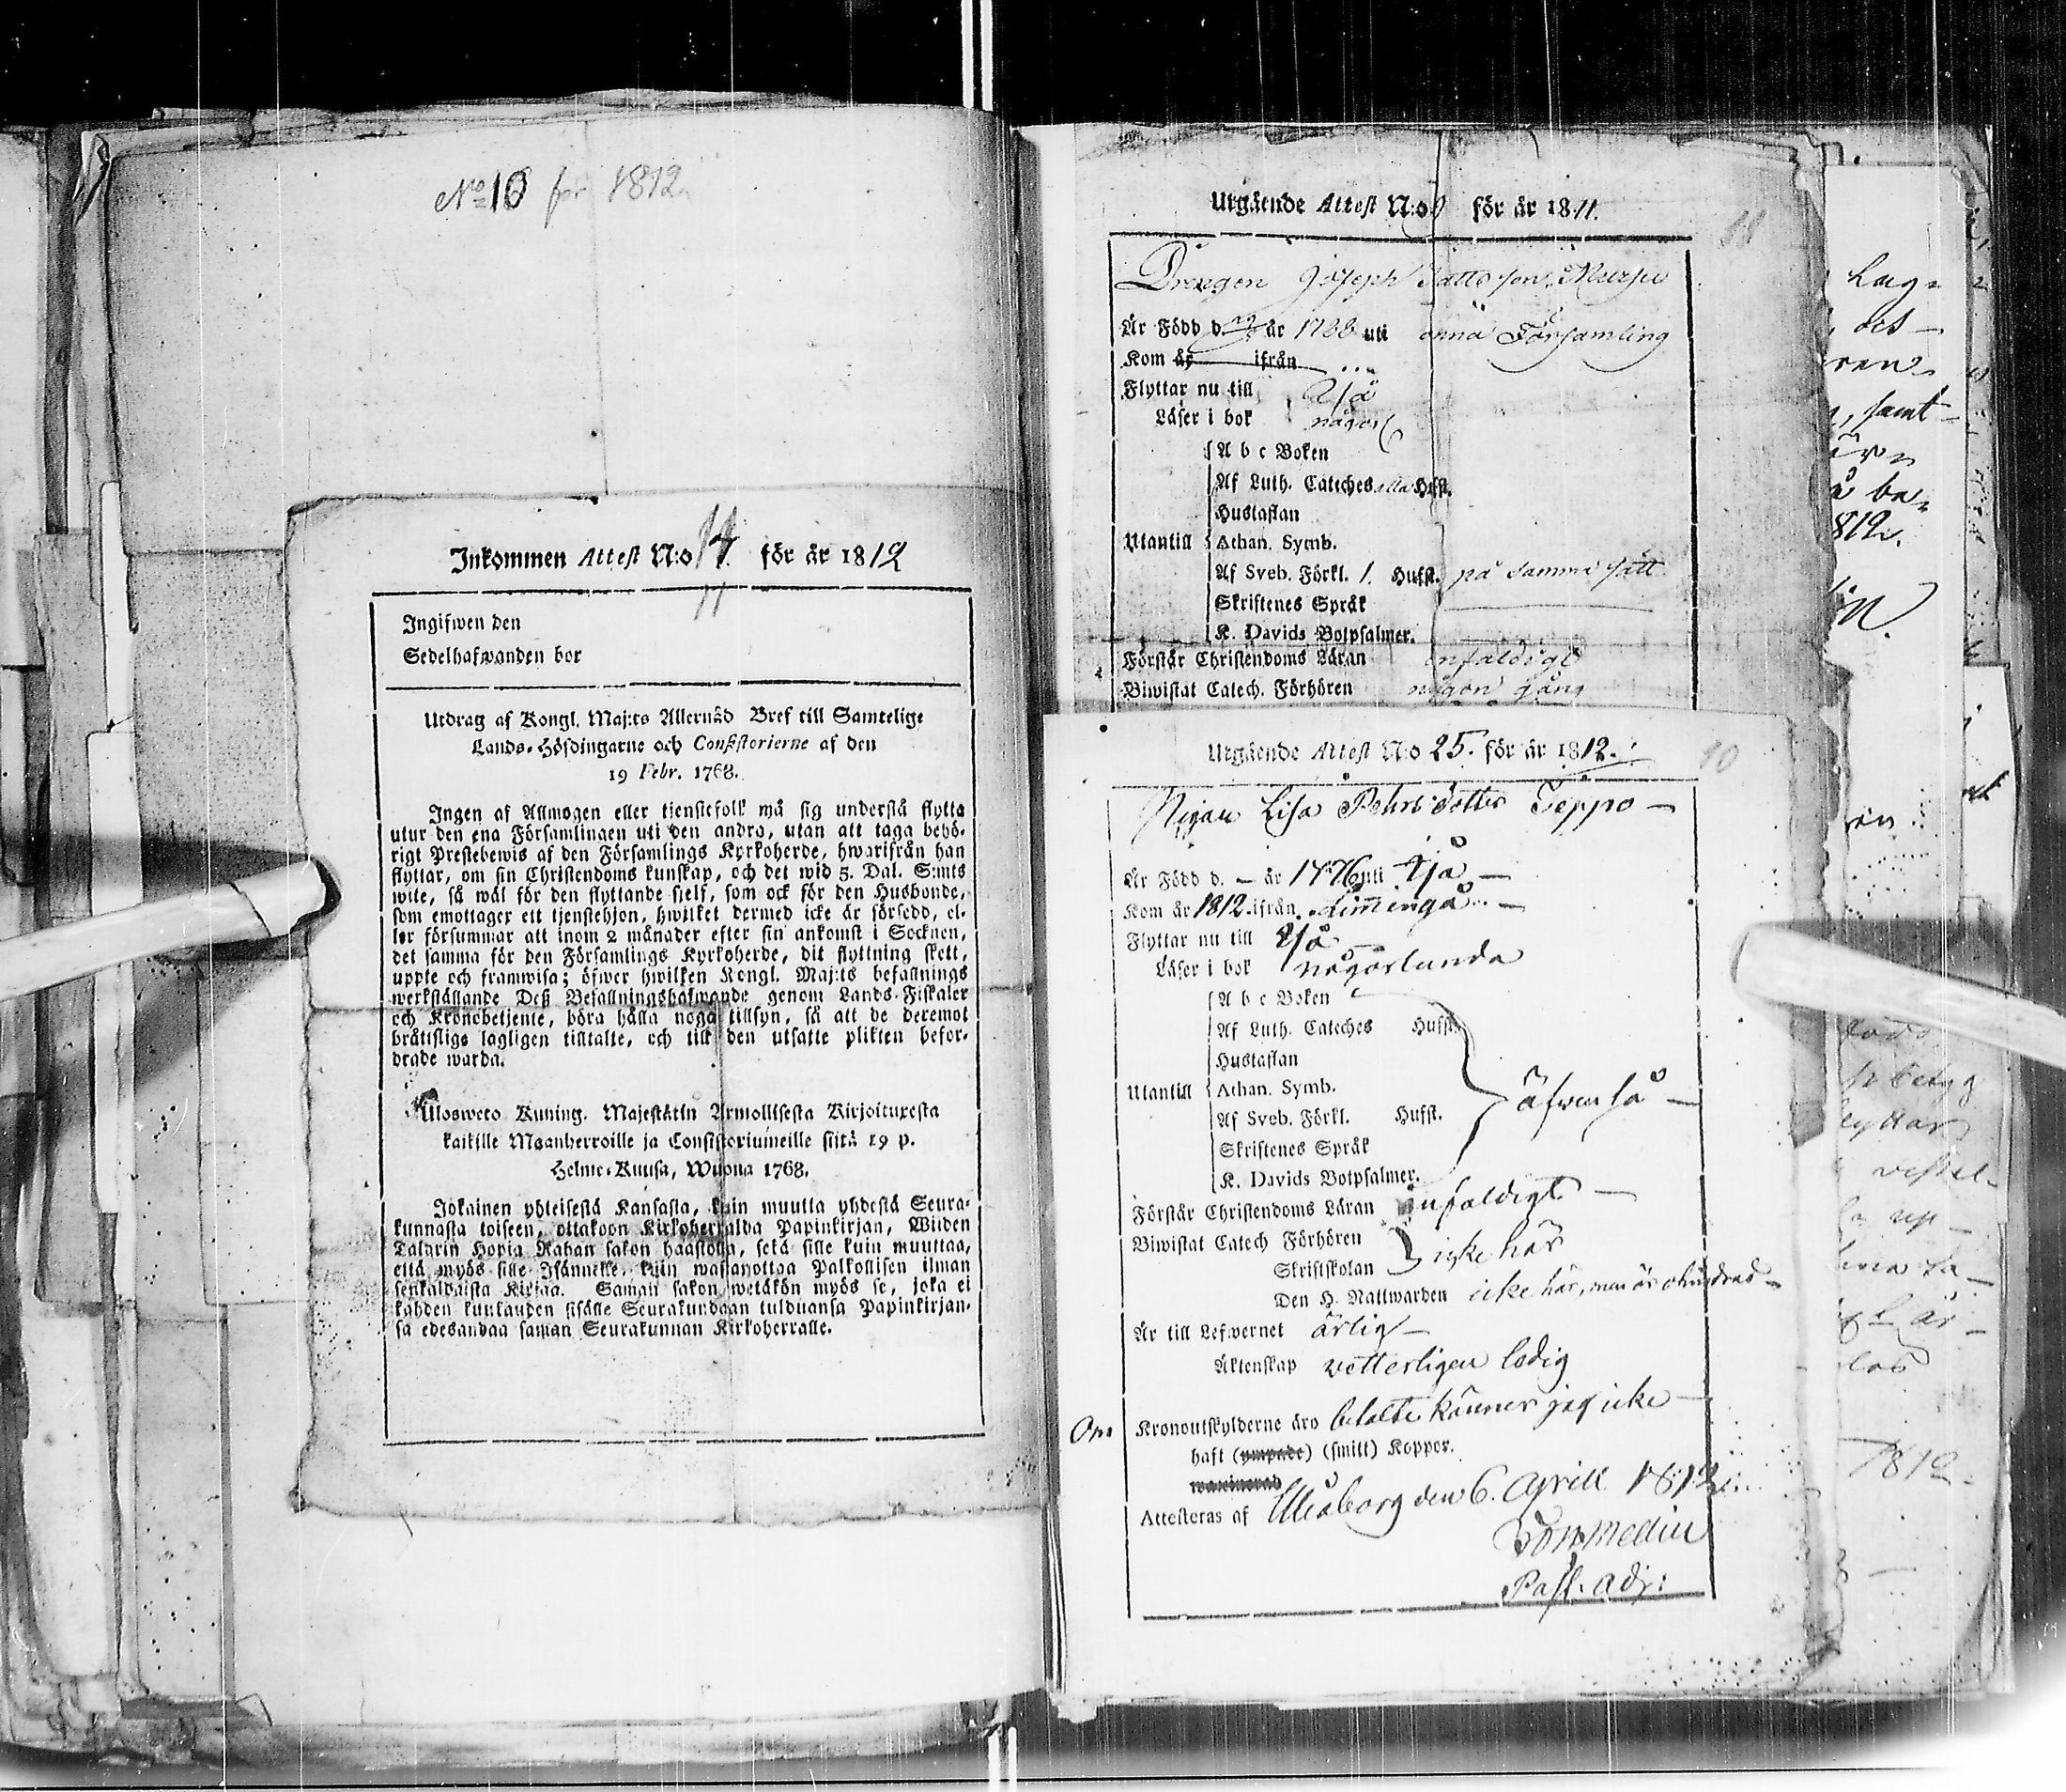 No 10 för 1812.
Inkommen Attest N:o 14. för år 1812
11
Ingifwen den
Sedelhafwanden bor
Utdrag af Kongl. Maj:ts Allernåd Bref till Samtelige
Lands-Höfdingarne och Consistorierne af den
19 Febr. 1768.
Ingen af Allmogen eller tienstefolk må sig understå flytta
utur den ena Församlingen uti den andra, utan att taga behö-
rigt Prestebewis af den Församlings Kyrkoherde, hwarifrån han
flyttar, om sin Christendoms kunskap, och det wid 5. Dal. S:mts
wite, så wäl för den flyttande sielf, som ock för den Husbonde,
som emottager ett tjenstehjon, hwilket dermed icke är försedd, el-
ler försummar att inom 2 månader efter sin ankomst i Socknen,
det samma för den Församlings Kyrkoherde, dit flyttning skett,
uppte och framwisa; öfwer hwilken Kongl. Maj:ts befallnings
werkställande Deß Befallningshafwande genom Lands-Fiskaler
och Kronobetjente, böra hålla noga tillsyn, så att de deremot
bråttslige lagligen tilltalte, och till den utsatte plikten befor-
drade warda.
Ulosweto Kuning. Majestätin Armollisesta Kirjoituxesta
kaikille Maanherroille ja Consistoriumeille siitä 19 p.
Helme-Kuusa, Wuona 1768.
Jokainen yhteisestä Kansasta, kuin muutta yhdestä Seura-
kunnasta toiseen, ottakoon Kirkoherralda Papinkirjan, Wiiden
Talarin Hopia Rahan sakon haastolla, sekä sille kuin muuttaa,
että myös sille Isännelle, kuin wastanottaa Palkollisen ilman
senkaldaista Kirjaa. Saman sakon wetäkön myös se, joka ei
kahden kuukauden sisälle Seurakundaan tulduansa Papinkirjan-
sa edesandaa saman Seurakunnan Kirkoherralle.
Utgående Attest N:o 9 för år 1811.
11
Drengen Joseph Mattsson Mursu
Är Född d. år 1788 uti denna Församling
Kom år ifrån
Flyttar nu till Ijå
Läser i bok någorl
A b c Boken
Af Luth. Cateches alla Hufst.
Hustaflan
Utantill Athan. Symb.
Af Sveb. Förkl. 1. Hufst. på samma sätt
Skriftenes Språk
K. Davids Botpsalmer.
Förstår Christendoms Läran enfaldigt
Biwistat Catech. Förhören någon gång
Utgående Attest N:o 25. för år 1812.
10
Pigan Lisa Pehrsdotter Seppo
Är Född d. – år 1776 uti Ijå –
Kom år 1812. ifrån Limingå –
Flyttar nu till Ijå –
Läser i bok någorlunda
A b c Boken
Af Luth. Cateches Hufst.
Hustaflan
Utantill Athan. Symb.
Af Sveb. Förkl. Hufst. äfven så –
Skriftenes Språk
K. Davids Botpsalmer.
Förstår Christendoms Läran enfaldigt –
Biwistat Catech Förhören
Skriftskolan icke här
Den H. Nattwarden icke här, men är ohindrad –
Är till Lefwernet ärlig –
Äktenskap vetterligen ledig
Om Kronoutskylderne äro betalte känner jag icke –
haft (ympade) (smitt) Koppor.
Attesteras af Uleåborg den 6. April 1812.
Past. adj:
Lag-
och –
samt –
ären
å be-
1812.
1812.